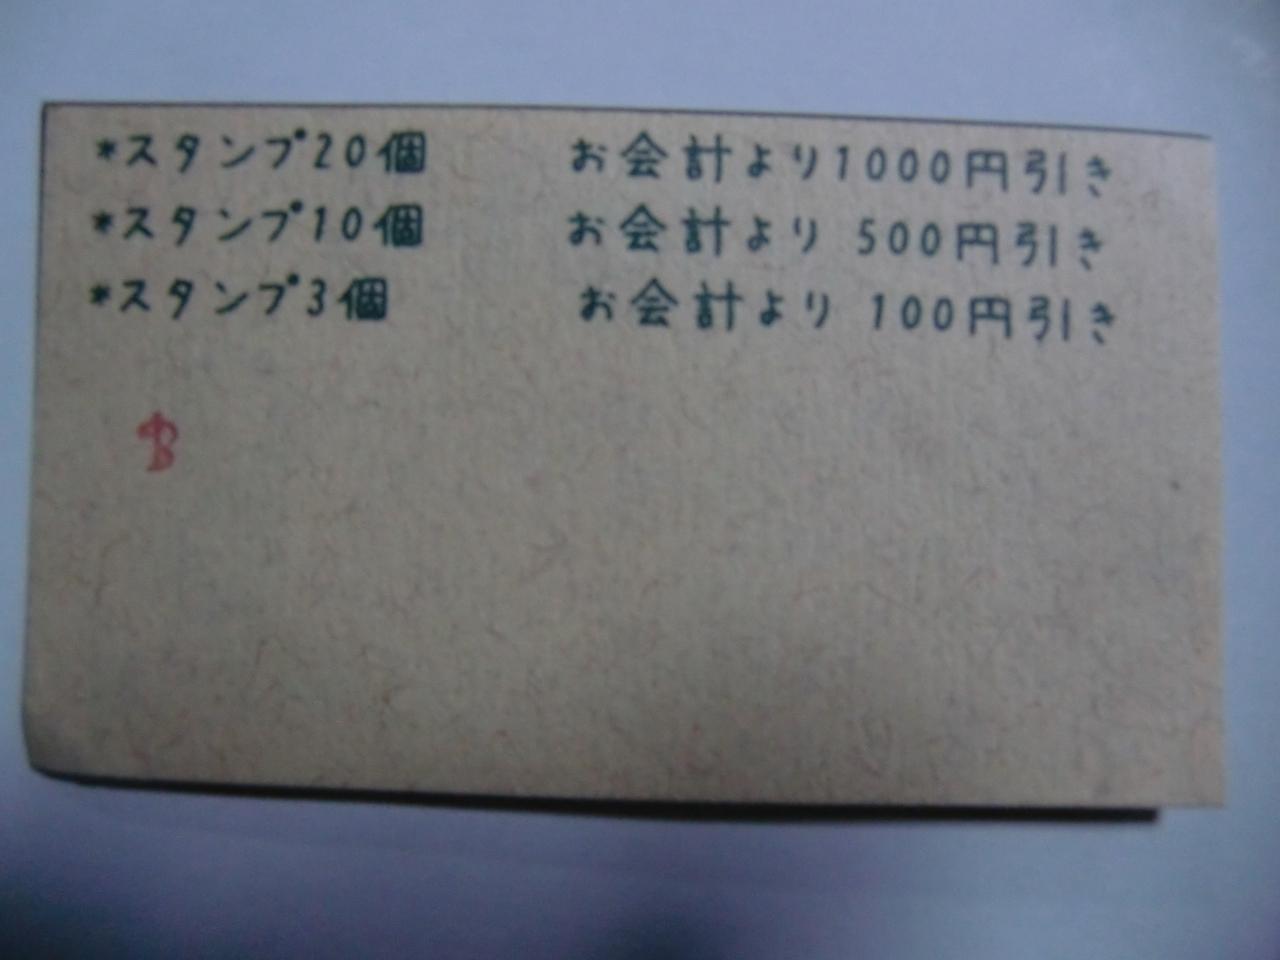 *スタンプ20個 お会計より1000円引き
*スタンプ10個 お会計より 500円引き
*スタンプ3個 お会計より 100円引き